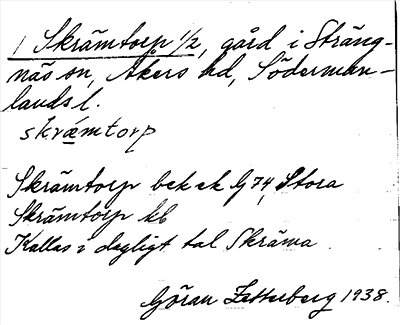 1 Skrämtorp 1/2, gård i Sträng-
näs sn, Åkers hd, Söderman-
lands l.
skræmtorp
Skrämtorp bek ek G 74, Stora
Skrämtorp kb
Kallas i dagligt tal Skräma
Göran Zetterberg 1938.